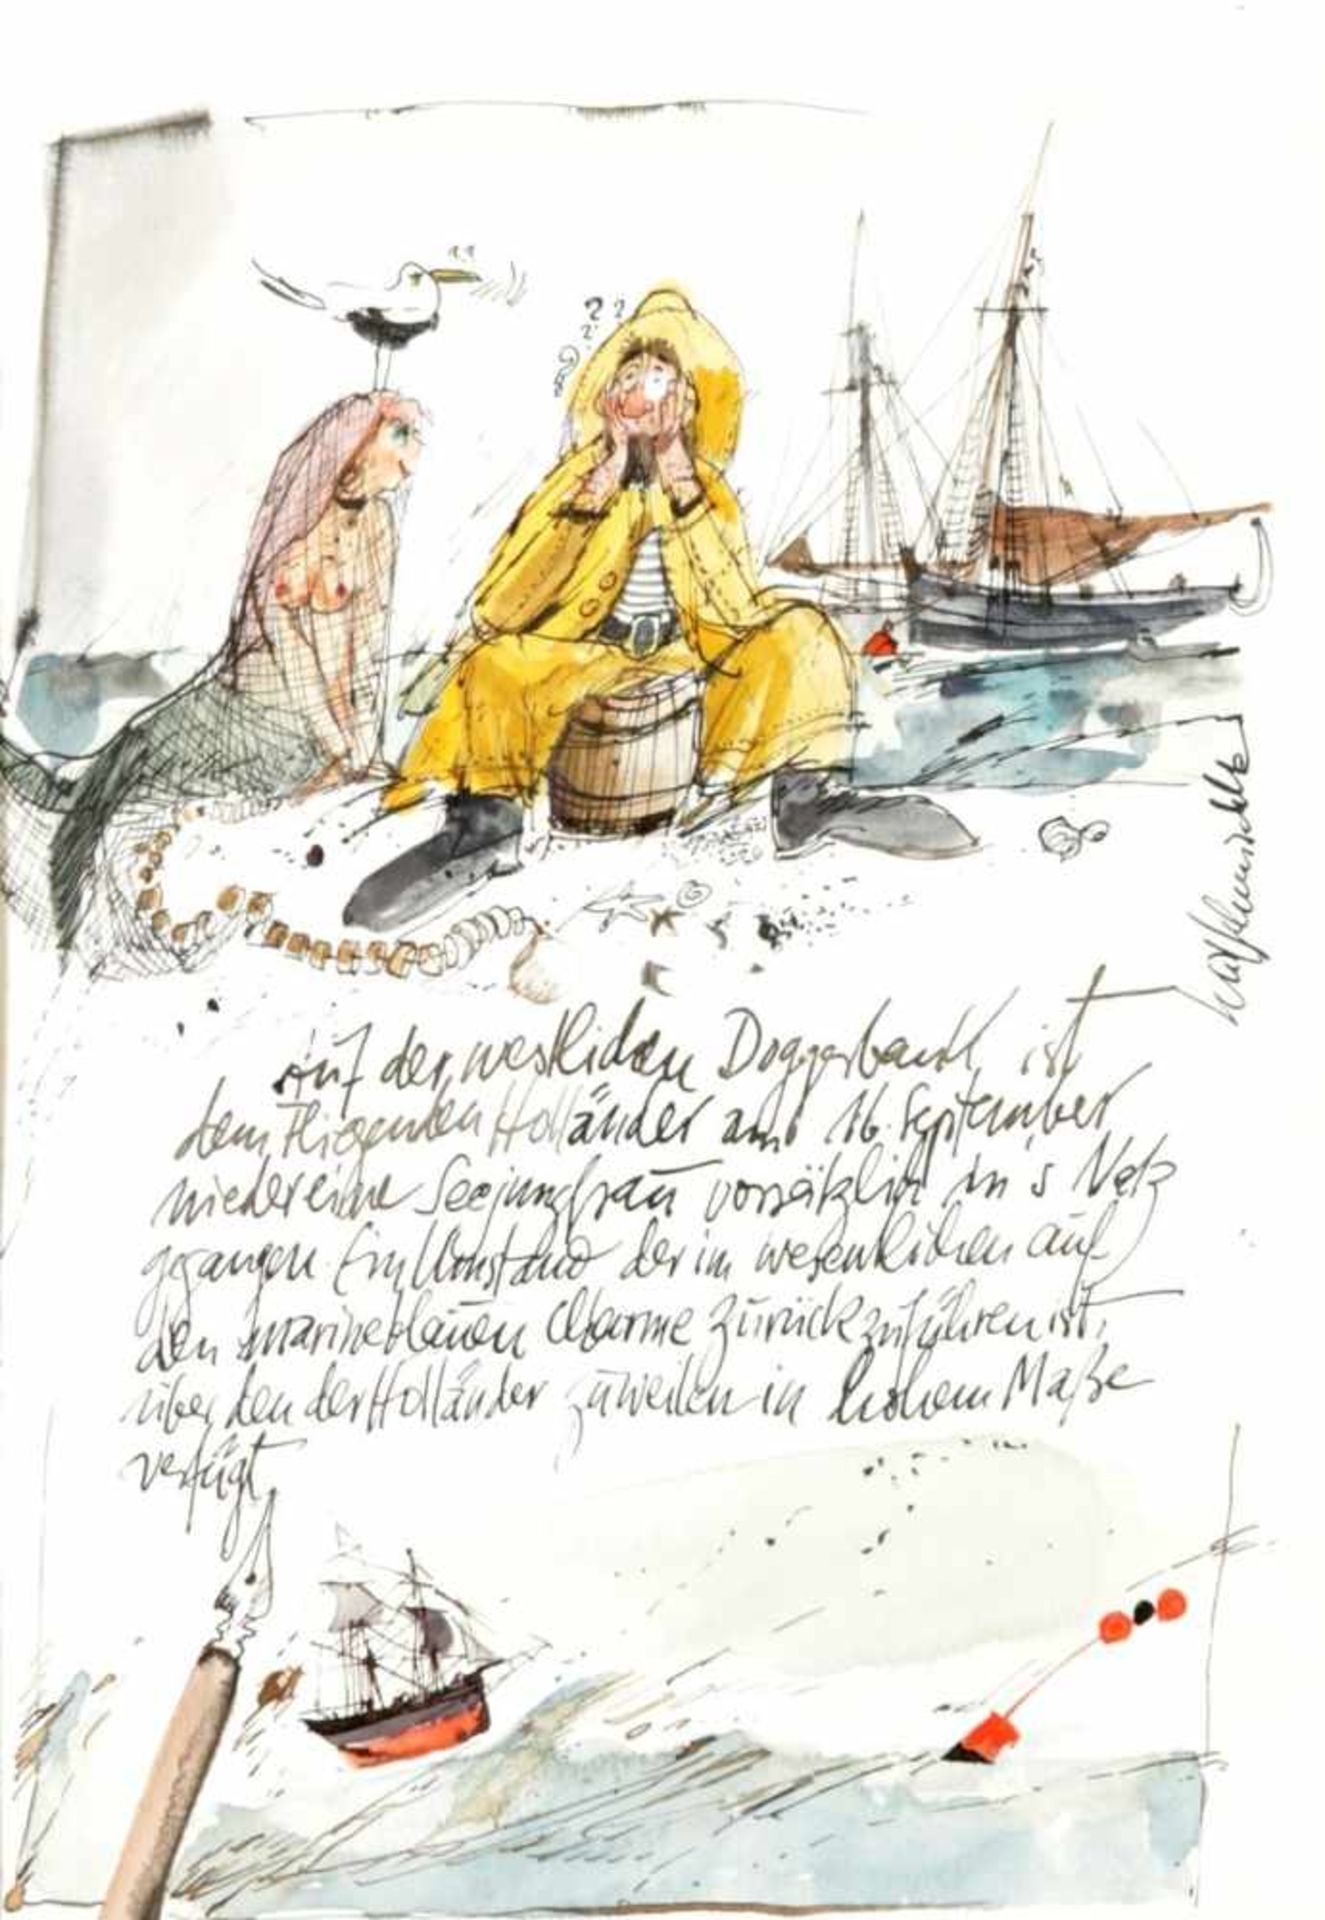 Auf der westlichen Doggerbank ist
dem Fliegenden Holländer am 16. September
wieder eine Seejungfrau vorsätzlich in's Netz
gegangen. Ein Umstand der im wesentlichen auf
den marineblauen Charme zurückzuführen ist,
über den der Holländer zuweilen in hohem Maße
verfügt.
? ?
?